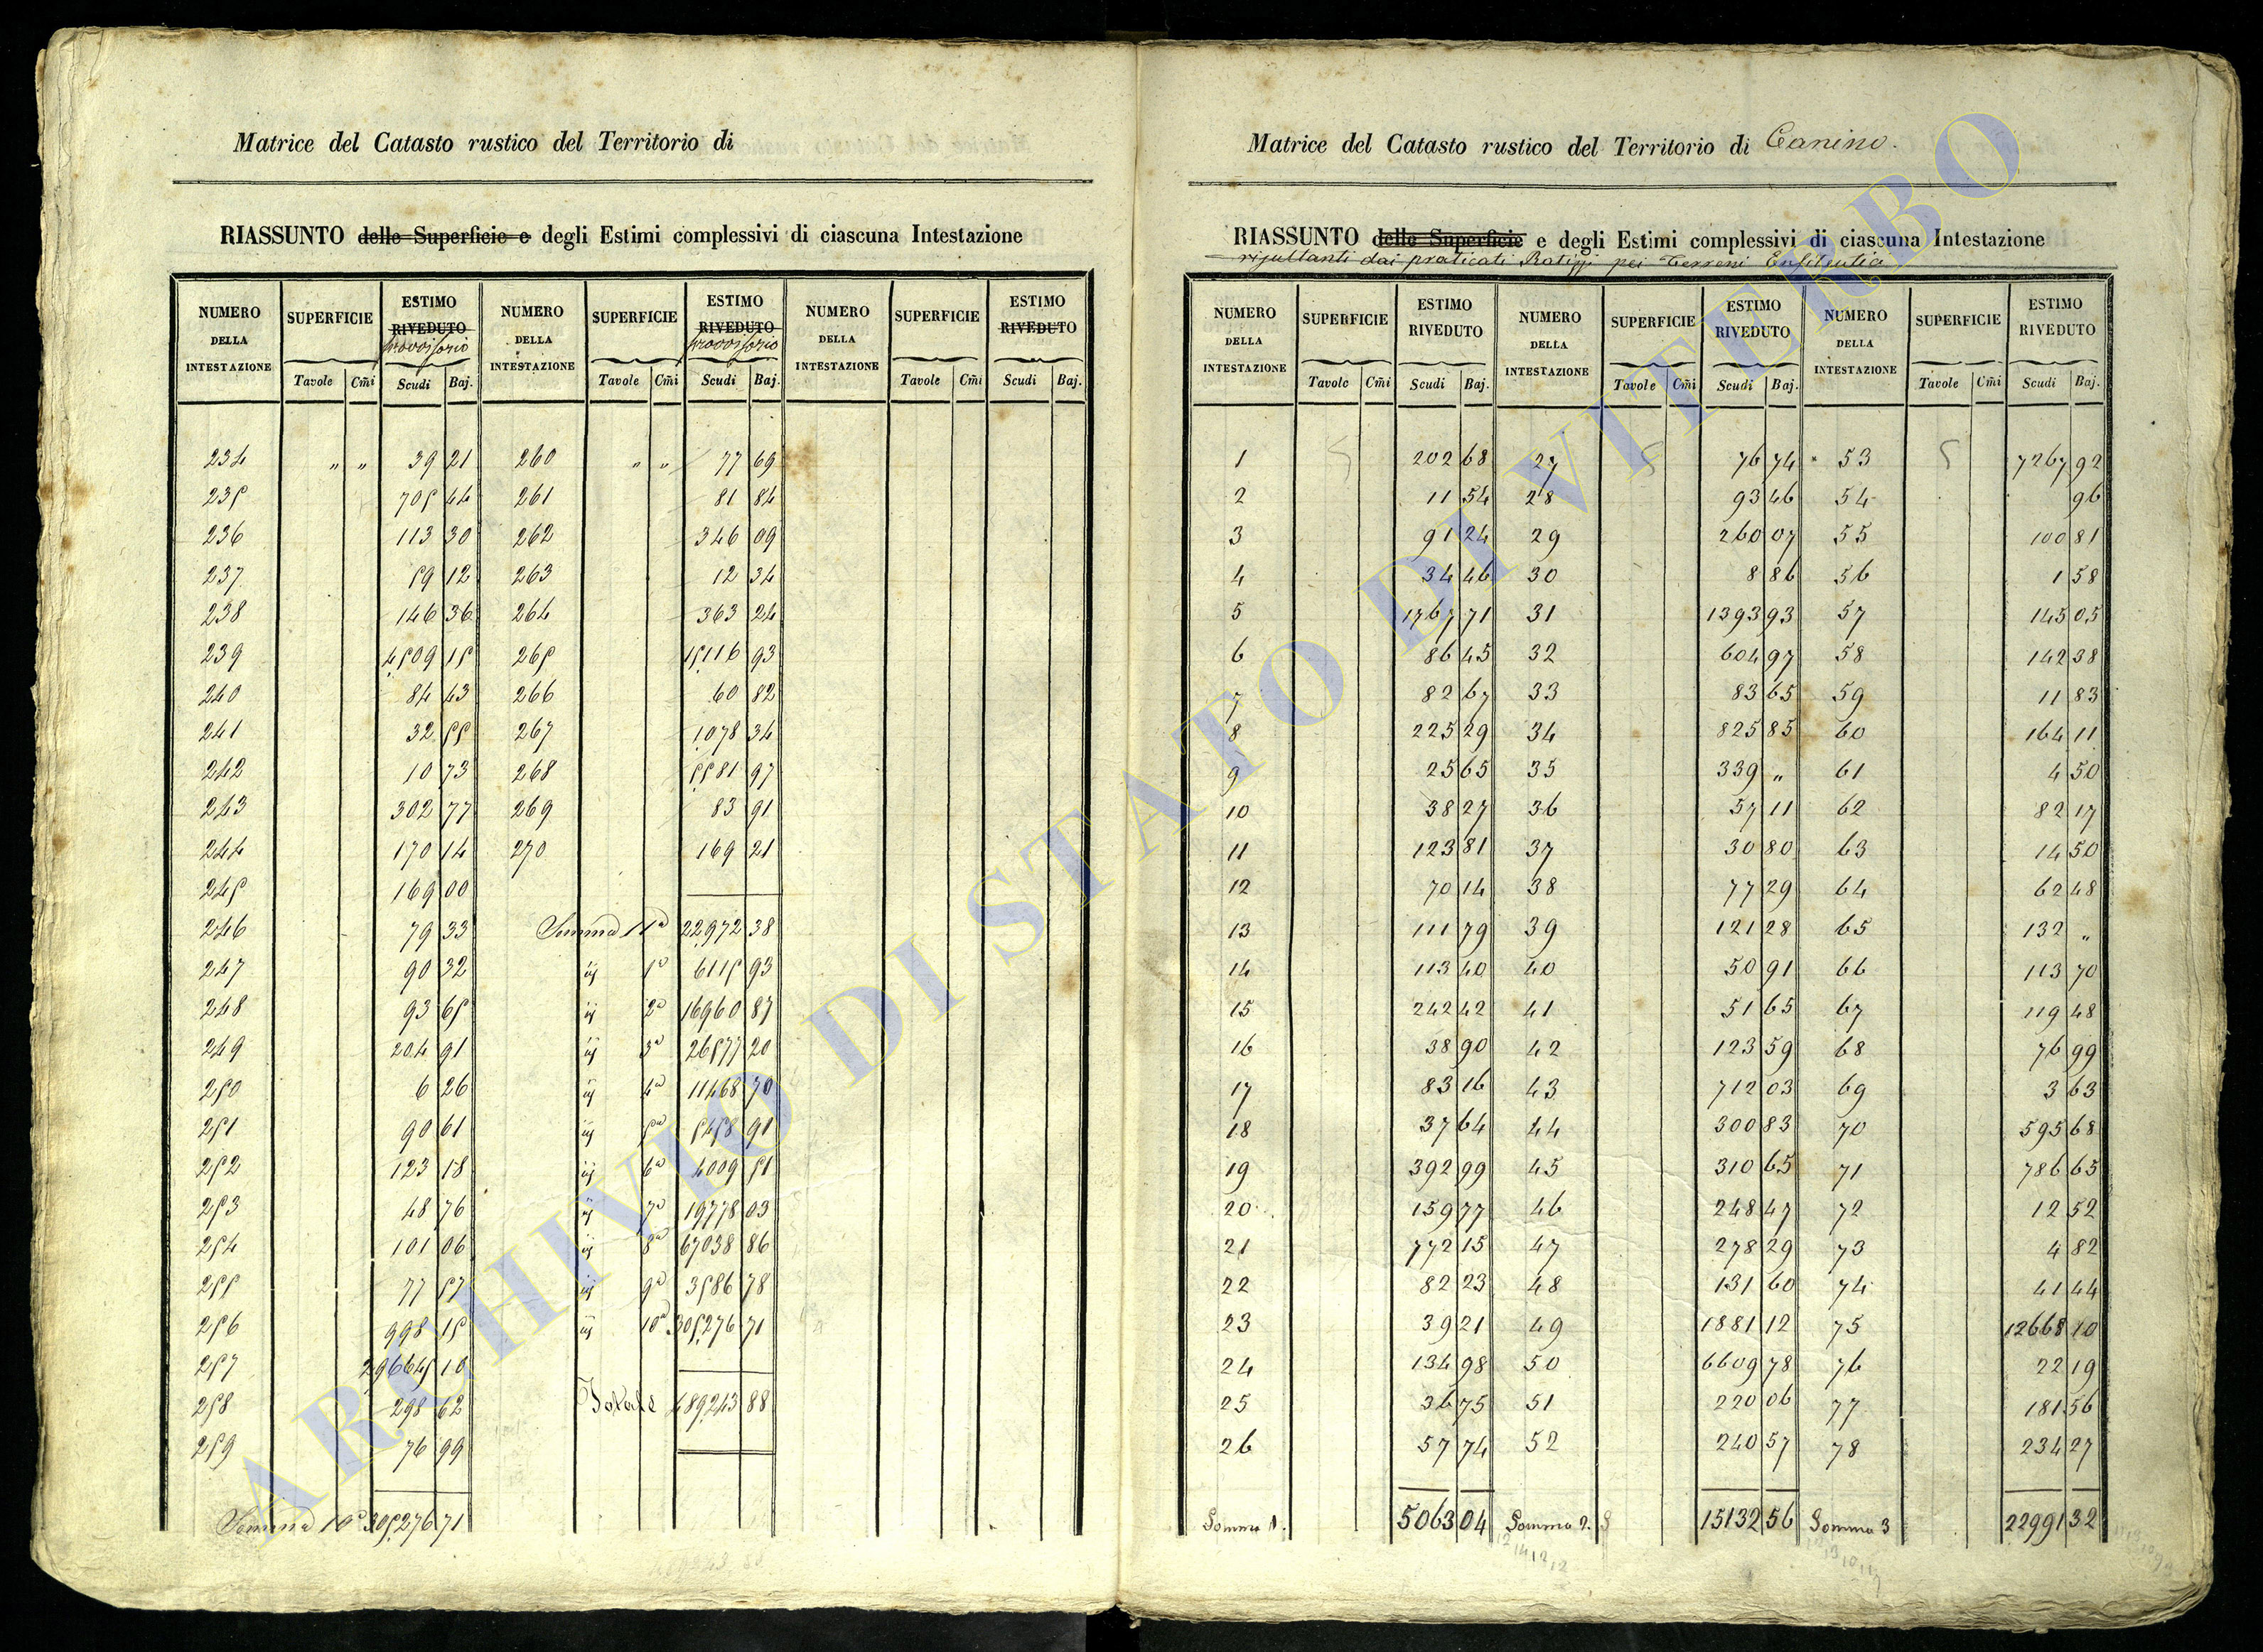 Matrice del Catasto rustico del Territorio di
RIASSUNTO delle Superficie e degli Estimi complessivi di ciascuna Intestazione
NUMERO DELLA INTESTAZIONE SUPERFICIE ESTIMO RIVEDUTO provvisorio NUMERO DELLA INTESTAZIONE SUPERFICIE ESTIMO RIVEDUTO provvisorio NUMERO DELLA INTESTAZIONE SUPERFICIE ESTIMO RIVEDUTO
Tavole Cmi Scudi Baj. Tavole Cmi Scudi Baj. Tavole Cmi Scudi Baj.
234 " " 39 21 260 " " 77 69
235 705 44 261 81 84
236 113 30 262 346 09
237 59 12 263 12 34
238 146 36 264 363 24
239 4509 15 265 15116 93
240 84 43 266 60 82
241 32 55 267 1078 34
242 10 73 268 5581 97
243 302 77 269 83 91
244 170 14 270 169 21
245 169 00
246 79 33 Somma 11a 22972 38
247 90 32 iij 1a 6115 93
248 93 65 iij 2a 16960 87
249 204 91 iij 3a 26577 20
250 6 26 iij 4a 11468 70
251 90 61 iij 5a 5458 91
252 123 18 iij 6a 4009 51
253 48 76 iij 7a 19778 03
254 101 06 iij 8a 67038 86
255 77 57 iij 9a 3586 78
256 998 15 iij 10a 305276 71
257 296645 10
258 298 62 Totale 489243 88
259 76 99
Somma 10a 305276 71
Matrice del Catasto rustico del Territorio di Canino.
RIASSUNTO delle Superficie e degli Estimi complessivi di ciascuna Intestazione
risultanti dai praticati Ratizzi pei Terreni Enfiteutici
NUMERO DELLA INTESTAZIONE SUPERFICIE ESTIMO RIVEDUTO NUMERO DELLA INTESTAZIONE SUPERFICIE ESTIMO RIVEDUTO NUMERO DELLA INTESTAZIONE SUPERFICIE ESTIMO RIVEDUTO
Tavole Cmi Scudi Baj. Tavole Cmi Scudi Baj. Tavole Cmi Scudi Baj.
1 202 68 27 76 74 53 7267 92
2 11 54 28 93 46 54 96
3 91 24 29 260 07 55 100 81
4 34 46 30 8 86 56 1 58
5 1767 71 31 1393 93 57 145 05
6 86 45 32 604 97 58 142 38
7 82 67 33 83 65 59 11 83
8 225 29 34 825 85 60 164 11
9 25 65 35 339 " 61 4 50
10 38 27 36 57 11 62 82 17
11 123 81 37 30 80 63 14 50
12 70 14 38 77 29 64 62 48
13 111 79 39 121 28 65 132 "
14 113 40 40 50 91 66 113 70
15 242 42 41 51 65 67 119 48
16 38 90 42 123 59 68 76 99
17 83 16 43 712 03 69 3 63
18 37 64 44 300 83 70 595 68
19 392 99 45 310 65 71 786 65
20 159 77 46 248 47 72 12 52
21 772 15 47 278 29 73 4 82
22 82 23 48 131 60 74 41 44
23 39 21 49 1881 12 75 12668 10
24 134 98 50 6609 78 76 22 19
25 36 75 51 220 06 77 181 56
26 57 74 52 240 57 78 234 27
Somma 1. 5063 04 Somma 2. 15132 56 Somma 3 22991 32
ARCHIVIO DI STATO DI VITERBO